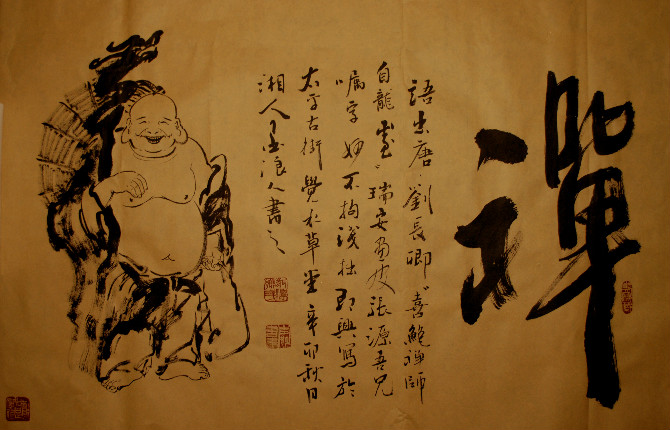 禪
語出唐劉長卿喜鮑禪師
自龍山至瑞安画友張源吾兄
嘱字不拘淺拙即興寫於
太平古街覺於草堂辛卯秋日
湘人墨浪人書之